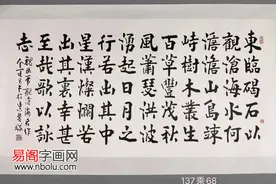 東臨碣石以
觀滄海水何
澹澹山島竦
峙樹木叢生
百草豐茂秋
風蕭瑟洪波
湧起日月之
行若出其中
星漢燦爛若
出其裏幸甚
至哉歌以詠
志
易阁字画网
137乘68